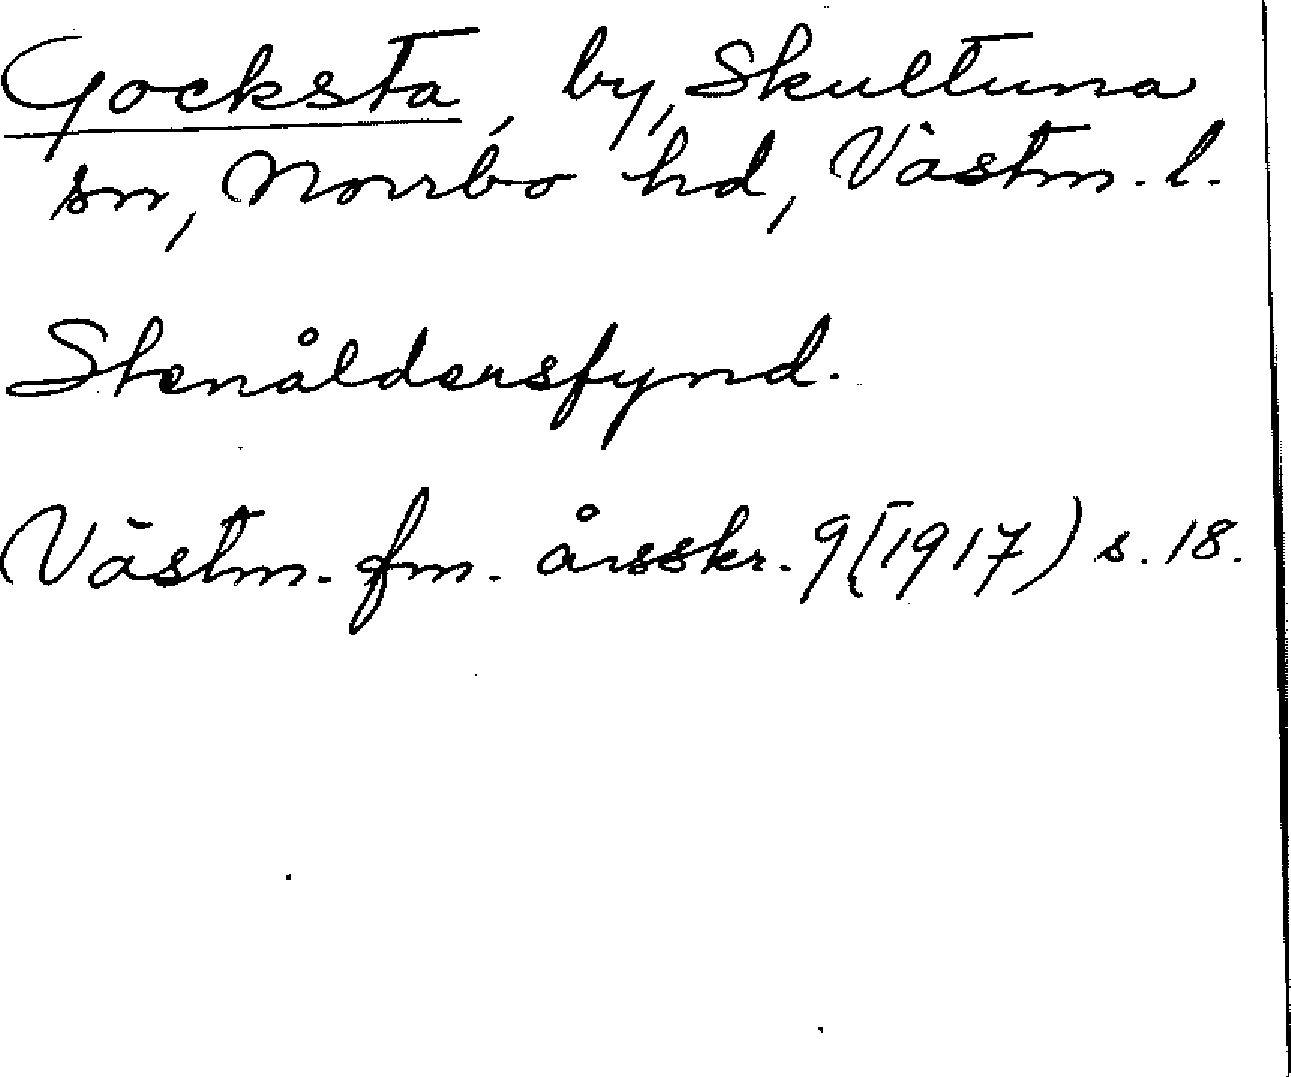 Gocksta, by, Skultuna
sn, Norrbo hd, Västm. l.
Stenåldersfynd.
Västm. fm. årsskr. 9 (1917) s. 18.